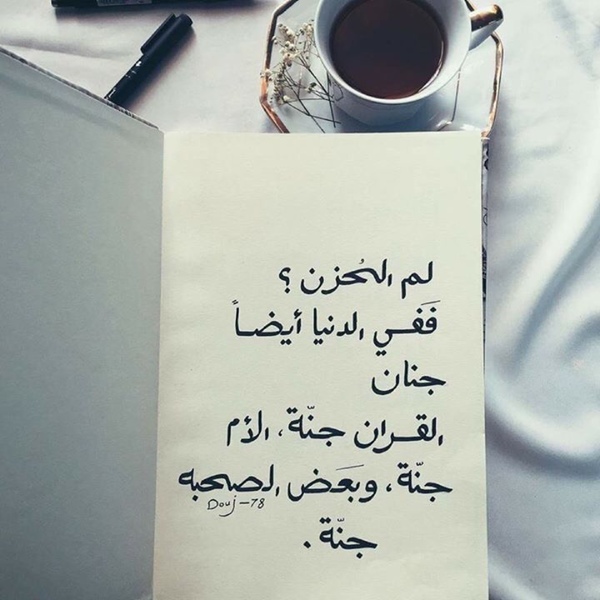 لم الحُزن ؟
فَفي الدنيا أيضاً
جنان
القران جنّة، الأم
جنّة، وبَعَض الصحبه
Douj-78
جنّة .